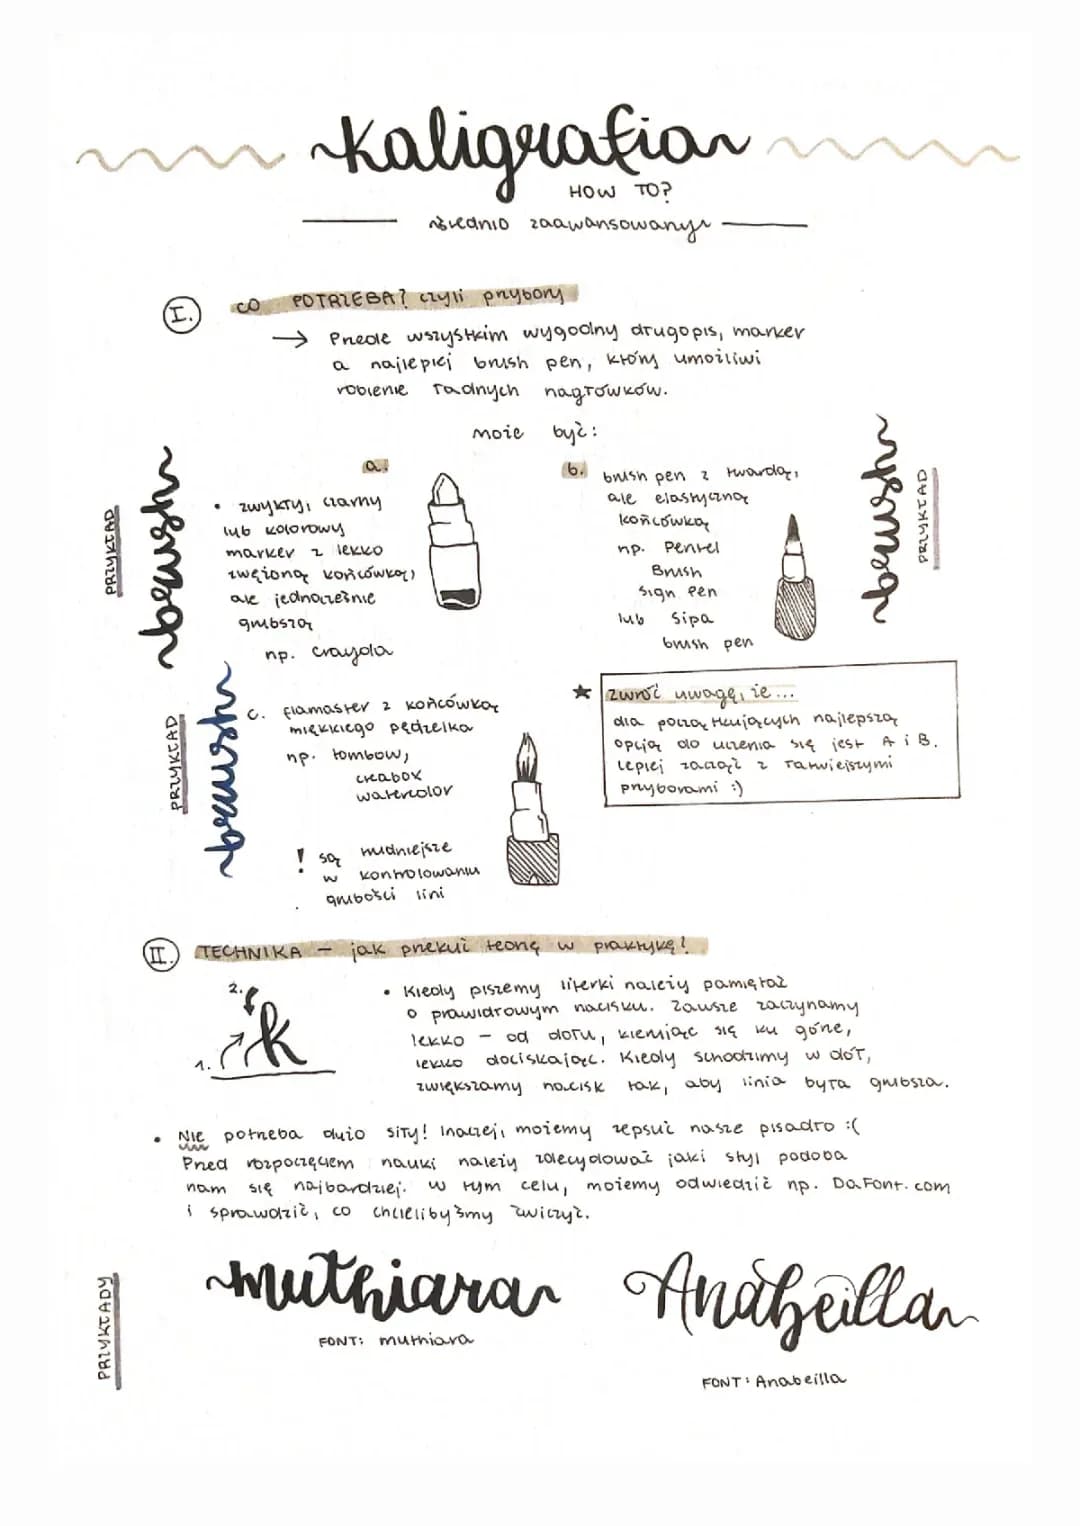 Kaligrafia
HOW TO?
średnio zaawansowany
I. CO POTRZEBA? czyli przybory
→ Przede wszystkim wygodny długopis, marker
a najlepiej brush pen, który umożliwi
robienie ładnych nagłówków.
może być:
a.
• zwykły, czarny
lub kolorowy
marker z lekko
zwężoną końcówką,
ale jednocześnie
grubszą
np. crayola
PRZYKŁAD
brush
b. brush pen z twardą,
ale elastyczną
końcówką
np. Pentel
Brush
Sign Pen
lub Sipa
brush pen
brush
PRZYKŁAD
c. flamaster z końcówką
miękkiego pędzelka
np. tombow,
creabox
watercolor
! są trudniejsze
w kontrolowaniu
grubości lini
PRZYKŁAD
brush
★ zwróć uwagę, że...
dla początkujących najlepszą
opcją do uczenia się jest A i B.
Lepiej zacząć z łatwiejszymi
przyborami :)
II. TECHNIKA - jak przekuć teorię w praktykę?
1. 2. k
• Kiedy piszemy literki należy pamiętać
o prawidłowym nacisku. Zawsze zaczynamy
lekko - od dołu, kierując się ku górze,
lekko dociskając. Kiedy schodzimy w dół,
zwiększamy nacisk tak, aby linia była grubsza.
• Nie potrzeba dużo siły! Inaczej, możemy zepsuć nasze pisadło :(
Przed rozpoczęciem nauki należy zdecydować jaki styl podoba
nam się najbardziej. W tym celu, możemy odwiedzić np. DaFont.com
i sprawdzić, co chcielibyśmy ćwiczyć.
PRZYKŁADY
muthiara
FONT: muthiara
Anabeilla
FONT: Anabeilla